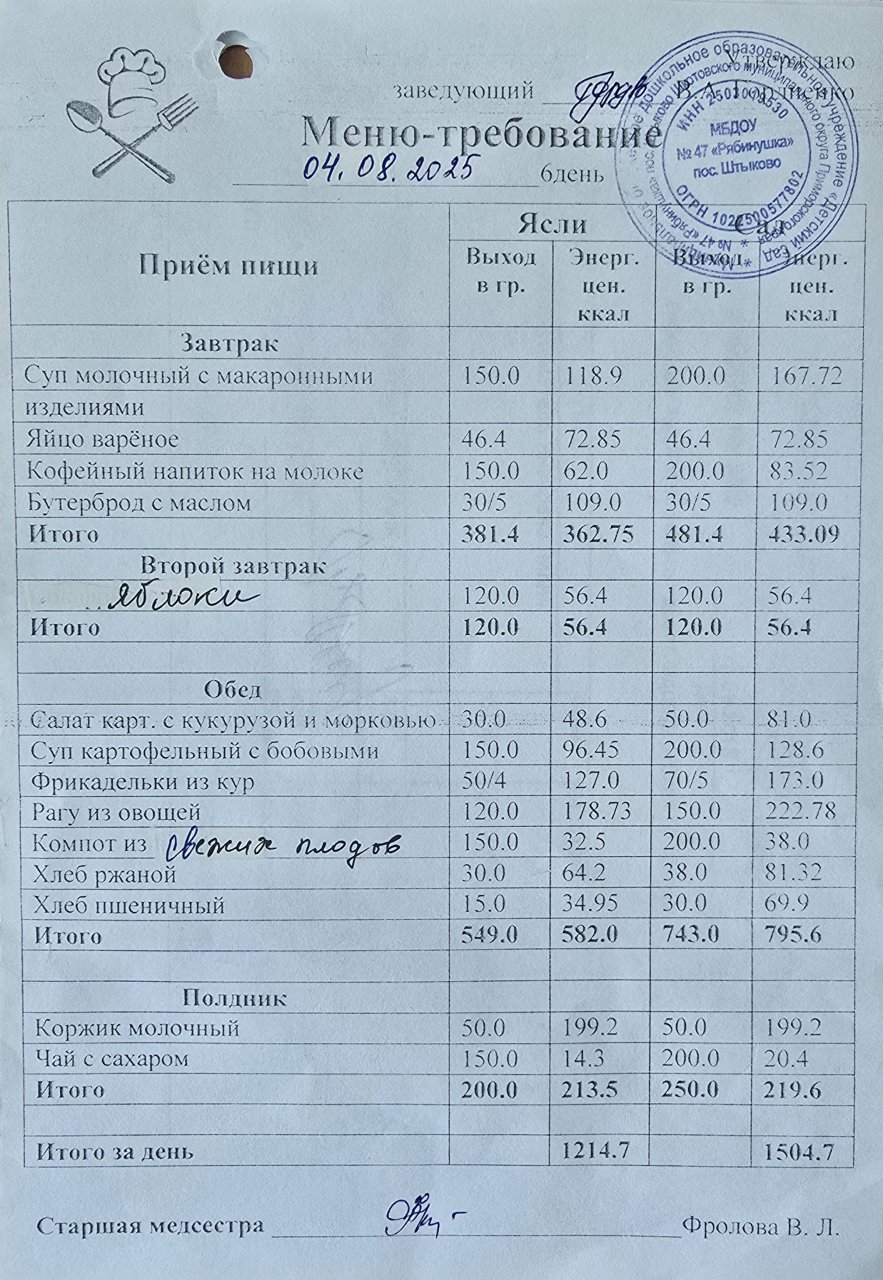 Утверждаю
заведующий В.А. Гордиенко
Меню-требование
04.08.2025 6день
МБДОУ
№ 47 «Рябинушка»
пос. Штыково
ОГРН 1022500577802
Ясли Сад
Приём пищи Выход в гр. Энерг. цен. ккал Выход в гр. Энерг. цен. ккал
Завтрак
Суп молочный с макаронными 150.0 118.9 200.0 167.72
изделиями
Яйцо варёное 46.4 72.85 46.4 72.85
Кофейный напиток на молоке 150.0 62.0 200.0 83.52
Бутерброд с маслом 30/5 109.0 30/5 109.0
Итого 381.4 362.75 481.4 433.09
Второй завтрак
яблоки 120.0 56.4 120.0 56.4
Итого 120.0 56.4 120.0 56.4
Обед
Салат карт. с кукурузой и морковью 30.0 48.6 50.0 81.0
Суп картофельный с бобовыми 150.0 96.45 200.0 128.6
Фрикадельки из кур 50/4 127.0 70/5 173.0
Рагу из овощей 120.0 178.73 150.0 222.78
Компот из свежих плодов 150.0 32.5 200.0 38.0
Хлеб ржаной 30.0 64.2 38.0 81.32
Хлеб пшеничный 15.0 34.95 30.0 69.9
Итого 549.0 582.0 743.0 795.6
Полдник
Коржик молочный 50.0 199.2 50.0 199.2
Чай с сахаром 150.0 14.3 200.0 20.4
Итого 200.0 213.5 250.0 219.6
Итого за день 1214.7 1504.7
Старшая медсестра Фролова В. Л.